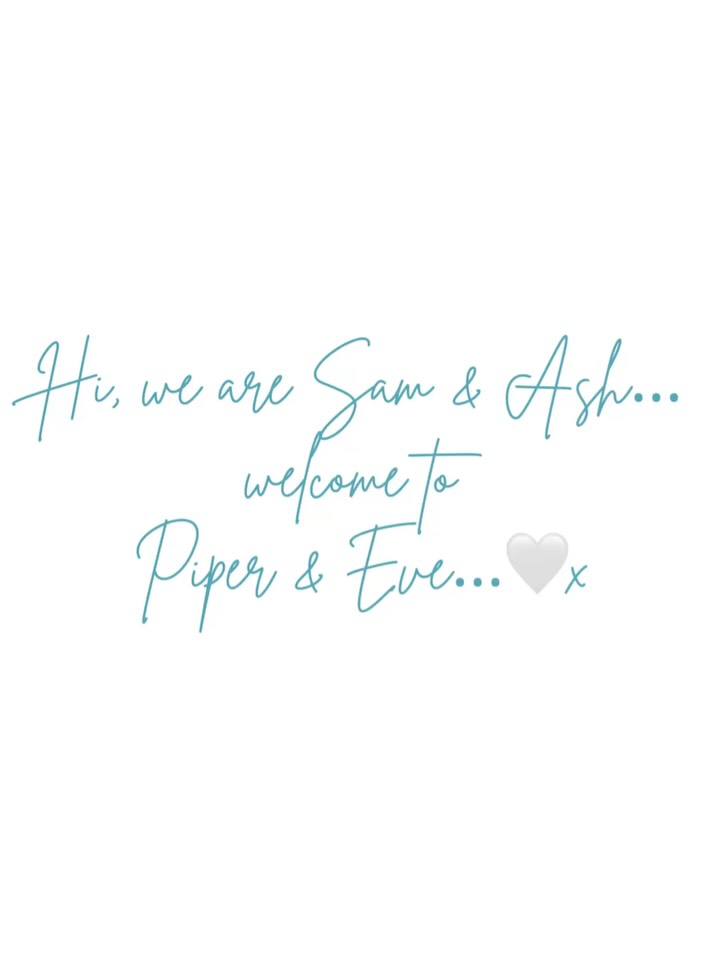 Hi, we are Sam & Ash...
welcome to
Piper & Eve...🤍x